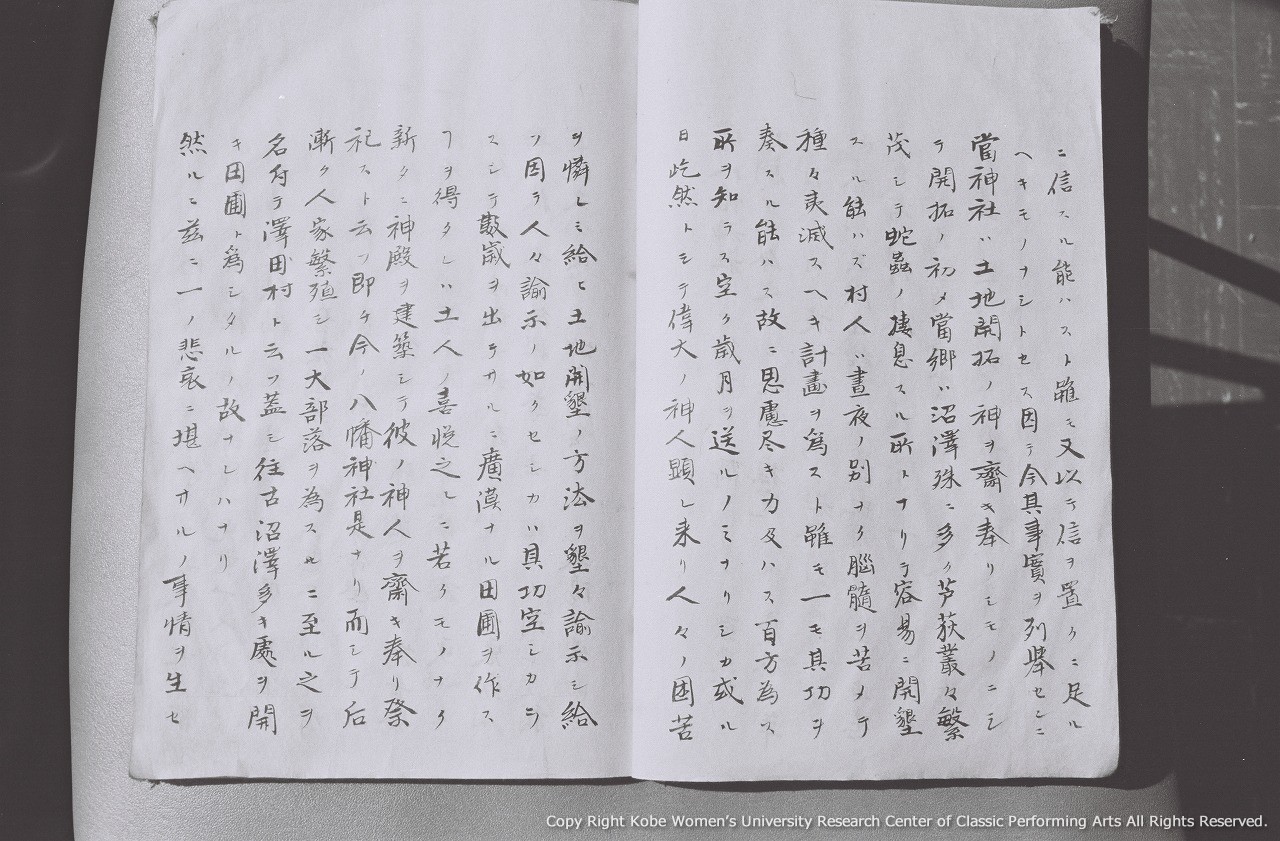 ニ信スル能ハスト雖モ又以テ信ヲ置クニ足ル
ヘキモノナシトセス因テ今其事實ヲ列舉センニ
當神社ハ土地開拓ノ神ヲ齋キ奉リシモノニシ
テ開拓ノ初メ當郷ハ沼澤殊ニ多ク芦荻叢々繁
茂シテ蛇蟲ノ棲息スル所トナリテ容易ニ開墾
スル能ハズ村人ハ晝夜ノ別ナク腦髓ヲ苦メテ
種々夷滅スヘキ計畫ヲ爲スト雖モ一モ其功ヲ
奏スル能ハス故ニ思慮尽キカ及ハス百方為ス
所ヲ知ラス空ク歳月ヲ送ルノミナリシカ或ル
日屹然トシテ偉大ノ神人顕レ来リ人々ノ困苦
ヲ憐レミ給ヒ土地開墾ノ方法ヲ墾々諭示シ給
フ因テ人々諭示ノ如クセシカハ其功空シカラ
スシテ数歳ヲ出テサルニ廣漠ナル田圃ヲ作ス
ヿヲ得タレハ土人ノ喜悦之レニ若クモノナク
新タニ神殿ヲ建築シテ彼ノ神人ヲ齋キ奉リ祭
祀スト云フ即チ今ノ八幡神社是ナリ而シテ后
漸ク人家繁殖シ一大部落ヲ為スルニ至ル之ヲ
名付テ澤田村ト云フ蓋シ往古沼澤多キ處ヲ開
キ田圃ト爲シタルノ故ナレハナリ
然ルニ茲ニ一ノ悲哀ニ堪ヘサルノ事情ヲ生セ
Copy Right Kobe Women's University Research Center of Classic Performing Arts All Rights Reserved.